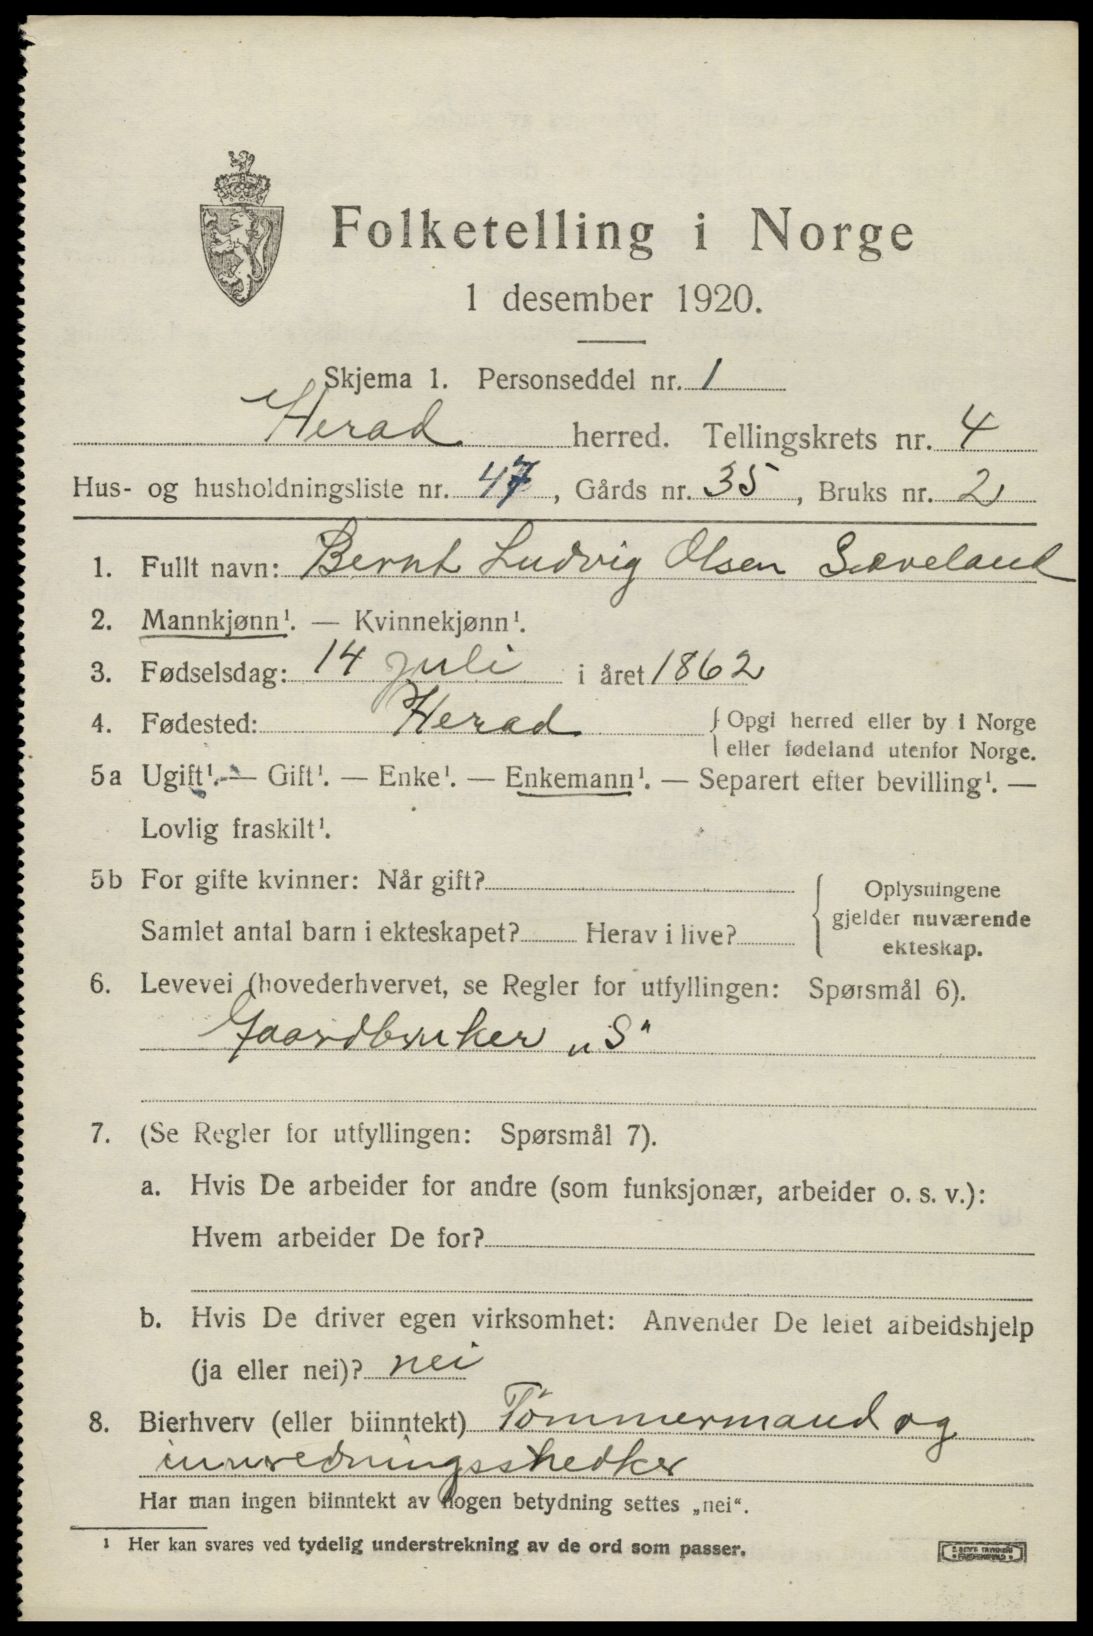 Folketelling i Norge
1 desember 1920.
Skjema 1. Personseddel nr. 1
Herad herred. Tellingskrets nr. 4
Hus- og husholdningsliste nr. 47, Gårds nr. 35, Bruks nr. 2
1. Fullt navn: Bernt Ludvig Olsen Sæveland
2. Mannkjønn¹. — Kvinnekjønn¹.
3. Fødselsdag: 14 juli i året 1862
4. Fødested: Herad { Opgi herred eller by i Norge
eller fødeland utenfor Norge.
5a Ugift¹. — Gift¹. — Enke¹. — Enkemann¹. — Separert efter bevilling¹. —
Lovlig fraskilt¹.
5b For gifte kvinner: Når gift?
Samlet antal barn i ekteskapet? Herav i live?
{ Oplysningene
gjelder nuværende
ekteskap.
6. Levevei (hovederhvervet, se Regler for utfyllingen: Spørsmål 6).
Gaardbruker „S“
7. (Se Regler for utfyllingen: Spørsmål 7).
a. Hvis De arbeider for andre (som funksjonær, arbeider o. s. v.):
Hvem arbeider De for?
b. Hvis De driver egen virksomhet: Anvender De leiet arbeidshjelp
(ja eller nei)? nei
8. Bierhverv (eller biinntekt) Tömmermand og
innredningssnedker
Har man ingen biinntekt av nogen betydning settes „nei“.
¹ Her kan svares ved tydelig understrekning av de ord som passer.